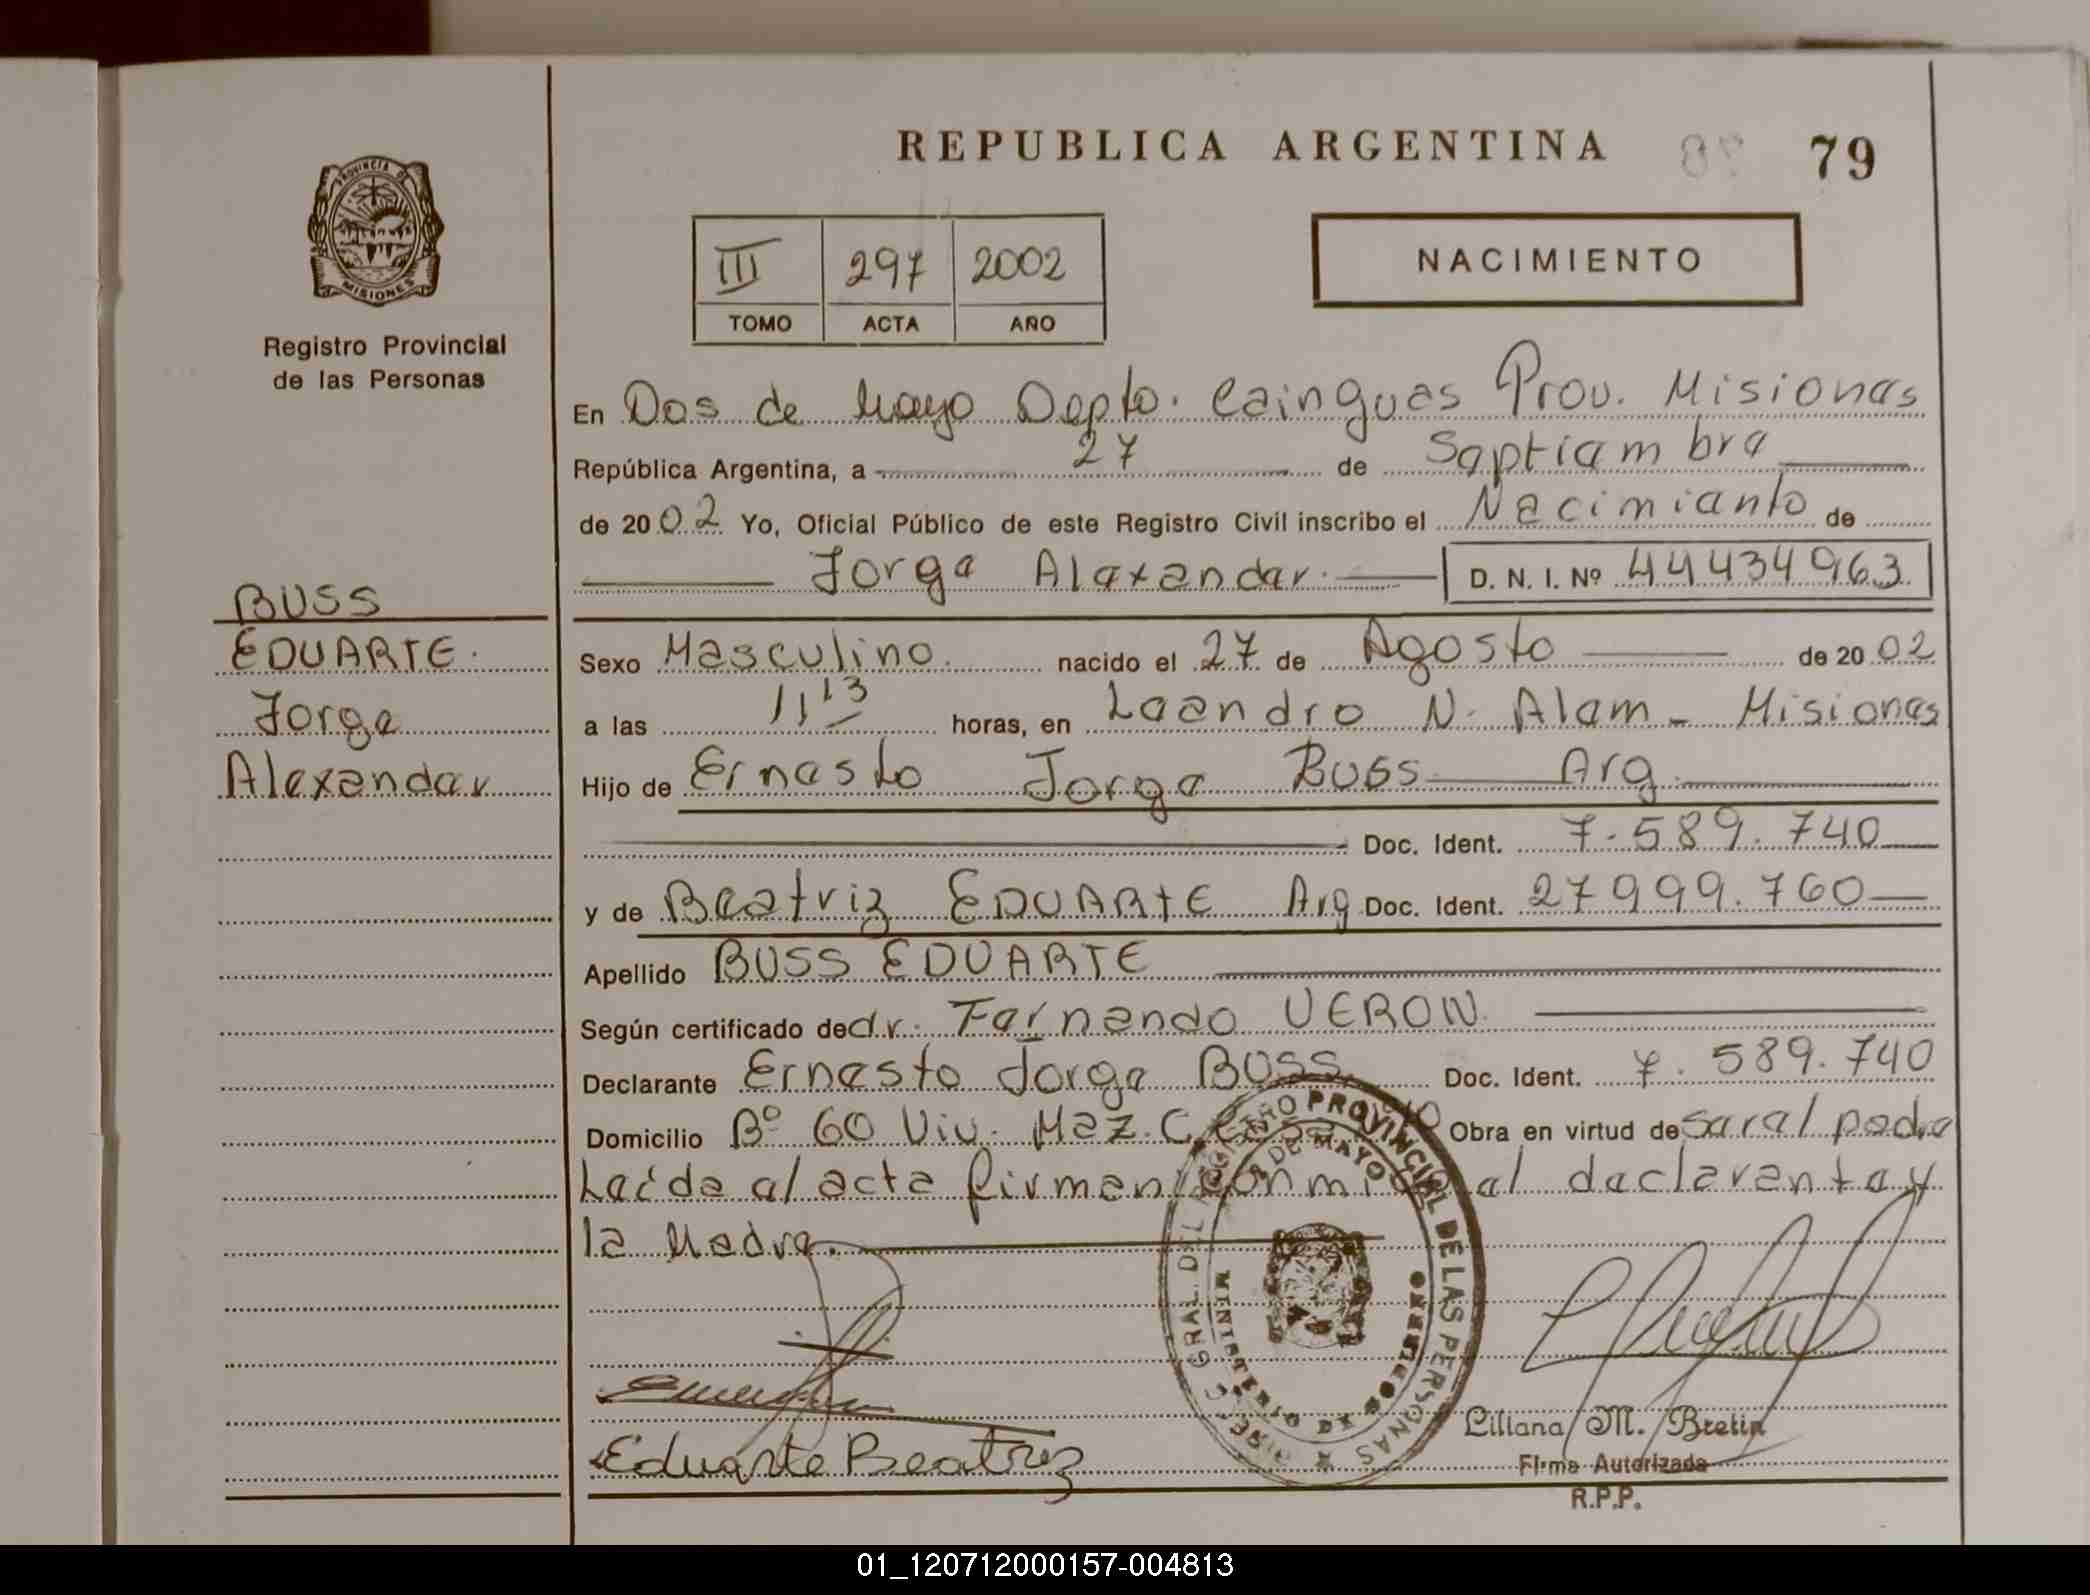 REPUBLICA ARGENTINA 79
PROVINCIA DE
MISIONES
Registro Provincial
de las Personas
III 297 2002
TOMO ACTA AÑO
NACIMIENTO
En Dos de Mayo Depto. Cainguas Prov. Misiones
República Argentina, a 27 de Septiembre
de 2002 Yo, Oficial Público de este Registro Civil inscribo el Nacimiento de
Jorge Alexander. D. N. I. Nº 44434963
BUSS
EDUARTE.
Jorge
Alexander
Sexo Masculino nacido el 27 de Agosto de 2002
a las 11 13 horas, en Leandro N. Alem - Misiones
Hijo de Ernesto Jorge BUSS Arg.
Doc. Ident. 7.589.740
y de Beatriz EDUARTE Arg Doc. Ident. 27999.760
Apellido BUSS EDUARTE
Según certificado de dr. Fernando VERON
Declarante Ernesto Jorge BUSS Doc. Ident. 7.589.740
Domicilio Bº 60 Viv. Maz. C Obra en virtud de ser el padre
Leída el acta firman conmigo el declarante y
la Madre.
REGISTRO PROVINCIAL DE LAS PERSONAS
2 DE MAYO
MINISTERIO DE GOBIERNO
Eduarte Beatriz
Liliana M. Bretin
Firma Autorizada
R.P.P.
01_120712000157-004813